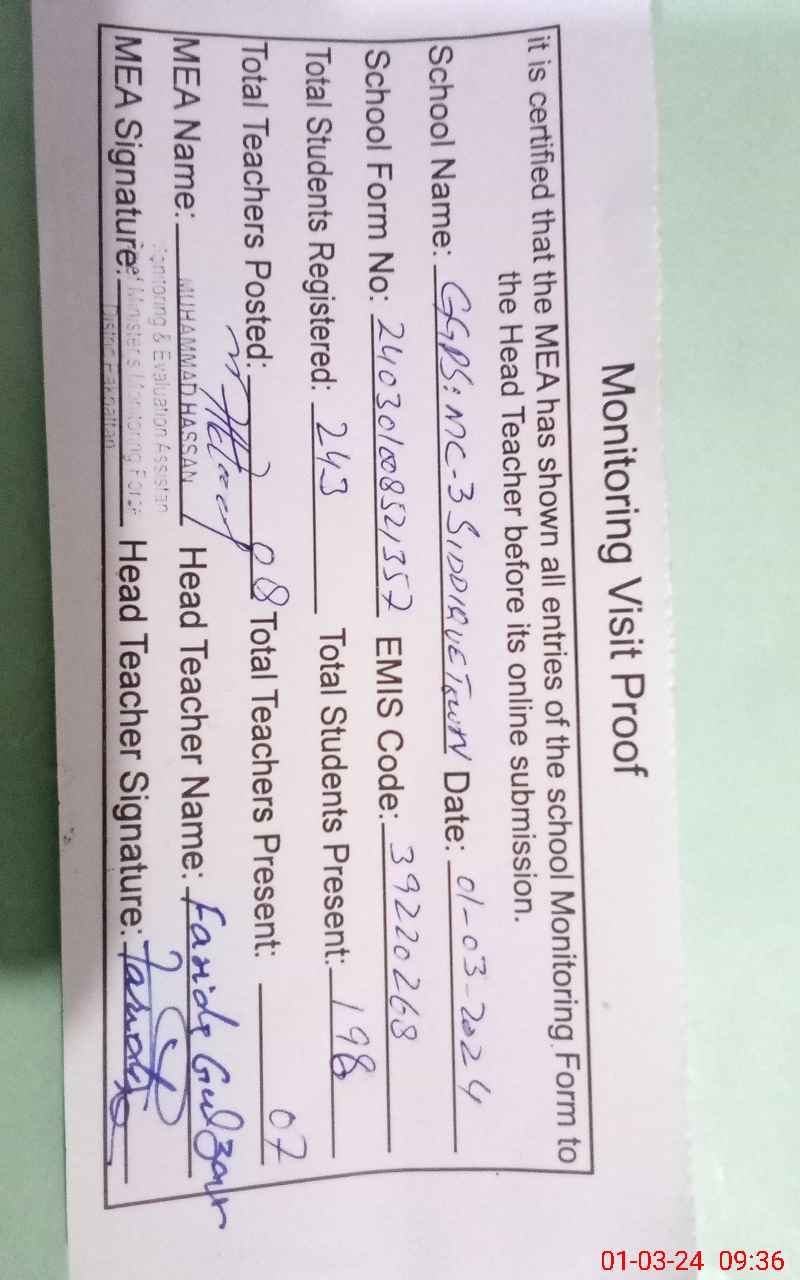 Monitoring Visit Proof
it is certified that the MEA has shown all entries of the school Monitoring Form to
the Head Teacher before its online submission.
School Name: GGPS: MC-3 SIDDIQUE TOWN Date: 01-03-2024
School Form No: 240301008521357 EMIS Code: 39220268
Total Students Registered: 243 Total Students Present: 198
Total Teachers Posted: 08 Total Teachers Present: 07
MEA Name: MUHAMMAD HASSAN Head Teacher Name: Farida Gulzar
Monitoring & Evaluation Assistan
MEA Signature: Chief Minister's Monitoring Force Head Teacher Signature:
District Pakpattan
01-03-24 09:36